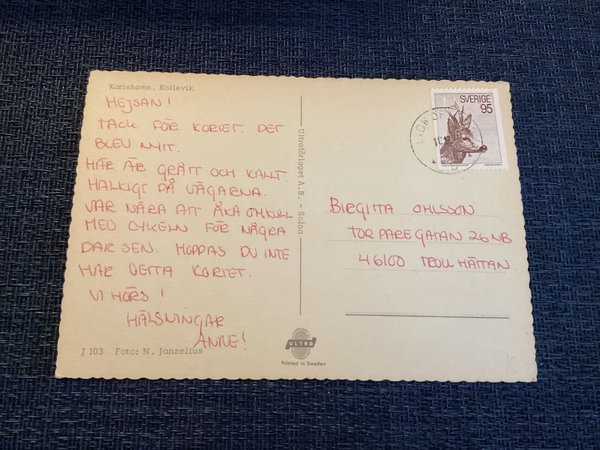 Karlshamn. Kollevik
HEJSAN!
TACK FÖR KORTET. DET
BLEV NYTT.
HÄR ÄR GRÅTT OCH KALLT
HALKIGT PÅ VÄGARNA.
VAR NÄRA ATT ÅKA OMKULL
MED CYKELN FÖR NÅGRA
DAR SEN. HOPPAS DU INTE
HAR DETTA KORTET.
VI HÖRS!
HÄLSNINGAR
ANNE!
J 103 Foto: N. Janzelius
Ultraförlaget A.B. - Solna
ULTRA
Printed in Sweden
SVERIGE
95
BIRGITTA OHLSSON
TORPAREGATAN 26 NB
46100 TROLLHÄTTAN